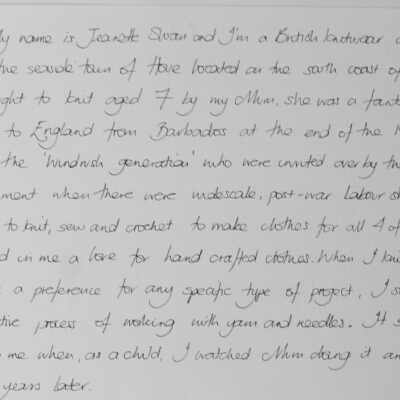 My name is Jeanette Sloan and I'm a British knitwear
the seaside town of Hove located on the south coast of
ght to knit aged 7 by my Mum, she was a fant
to England from Barbados at the end of the
the 'Windrush generation' who were invited over by th
ment when there were widescale, post-war labour s
to knit, sew and crochet to make clothes for all 4 of
d in me a love for hand crafted clothes. When I kni
a preference for any specific type of project, I
tive process of working with yarn and needles. It s
me when, as a child, I watched Mum doing it an
years later.